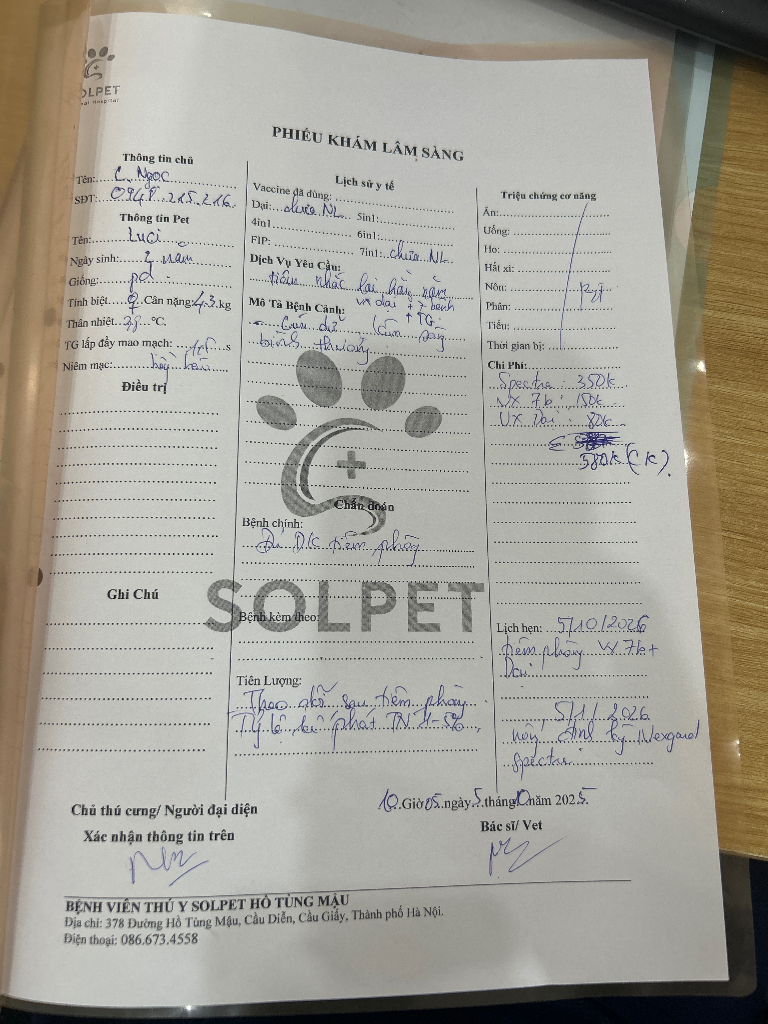 OLPET
PHIẾU KHÁM LÂM SÀNG
Thông tin chủ
Tên: C. Ngọc
SĐT: 0948.215.216
Thông tin Pet
Tên: Luci
Ngày sinh: 2 năm
Giống: pd
Tính biệt ♀ Cân nặng: 4.3 kg
Thân nhiệt 38 °C.
TG lấp đầy mao mạch: s
Niêm mạc: hồng hào
Điều trị
Ghi Chú
Lịch sử y tế
Vaccine đã dùng:
Dại: chưa NL 5in1:
4in1 6in1:
FIP: 7in1: chưa NL
Dịch Vụ Yêu Cầu:
tiêm nhắc lại hằng năm
vx dại + 7 bệnh
Mô Tả Bệnh Cảnh: ↑ ↑ TG
bình thường
Chẩn đoán
Bệnh chính:
Đủ ĐK tiêm phòng
SOLPET
Bệnh kèm theo:
Tiên Lượng:
Theo dõi sau tiêm phòng
Tỷ lệ tái phát TN 1-5%
Triệu chứng cơ năng
Ăn:
Uống:
Ho:
Hắt xì:
Nôn:
Phân:
Tiểu:
Thời gian bị:
Chi Phí:
Spectra: 350k
VX 7b: 150k
VX Dại: 80k
580k (CK).
Lịch hẹn: 5/10/2026
tiêm phòng VX 7b +
Dại
5/1/2026
Nexgard
spectra
10 Giờ 05 ngày 5 tháng 10 năm 2025
Chủ thú cưng/ Người đại diện
Xác nhận thông tin trên
Bác sĩ/ Vet
BỆNH VIỆN THÚ Y SOLPET HỒ TÙNG MẬU
Địa chỉ: 378 Đường Hồ Tùng Mậu, Cầu Diễn, Cầu Giấy, Thành phố Hà Nội.
Điện thoại: 086.673.4558